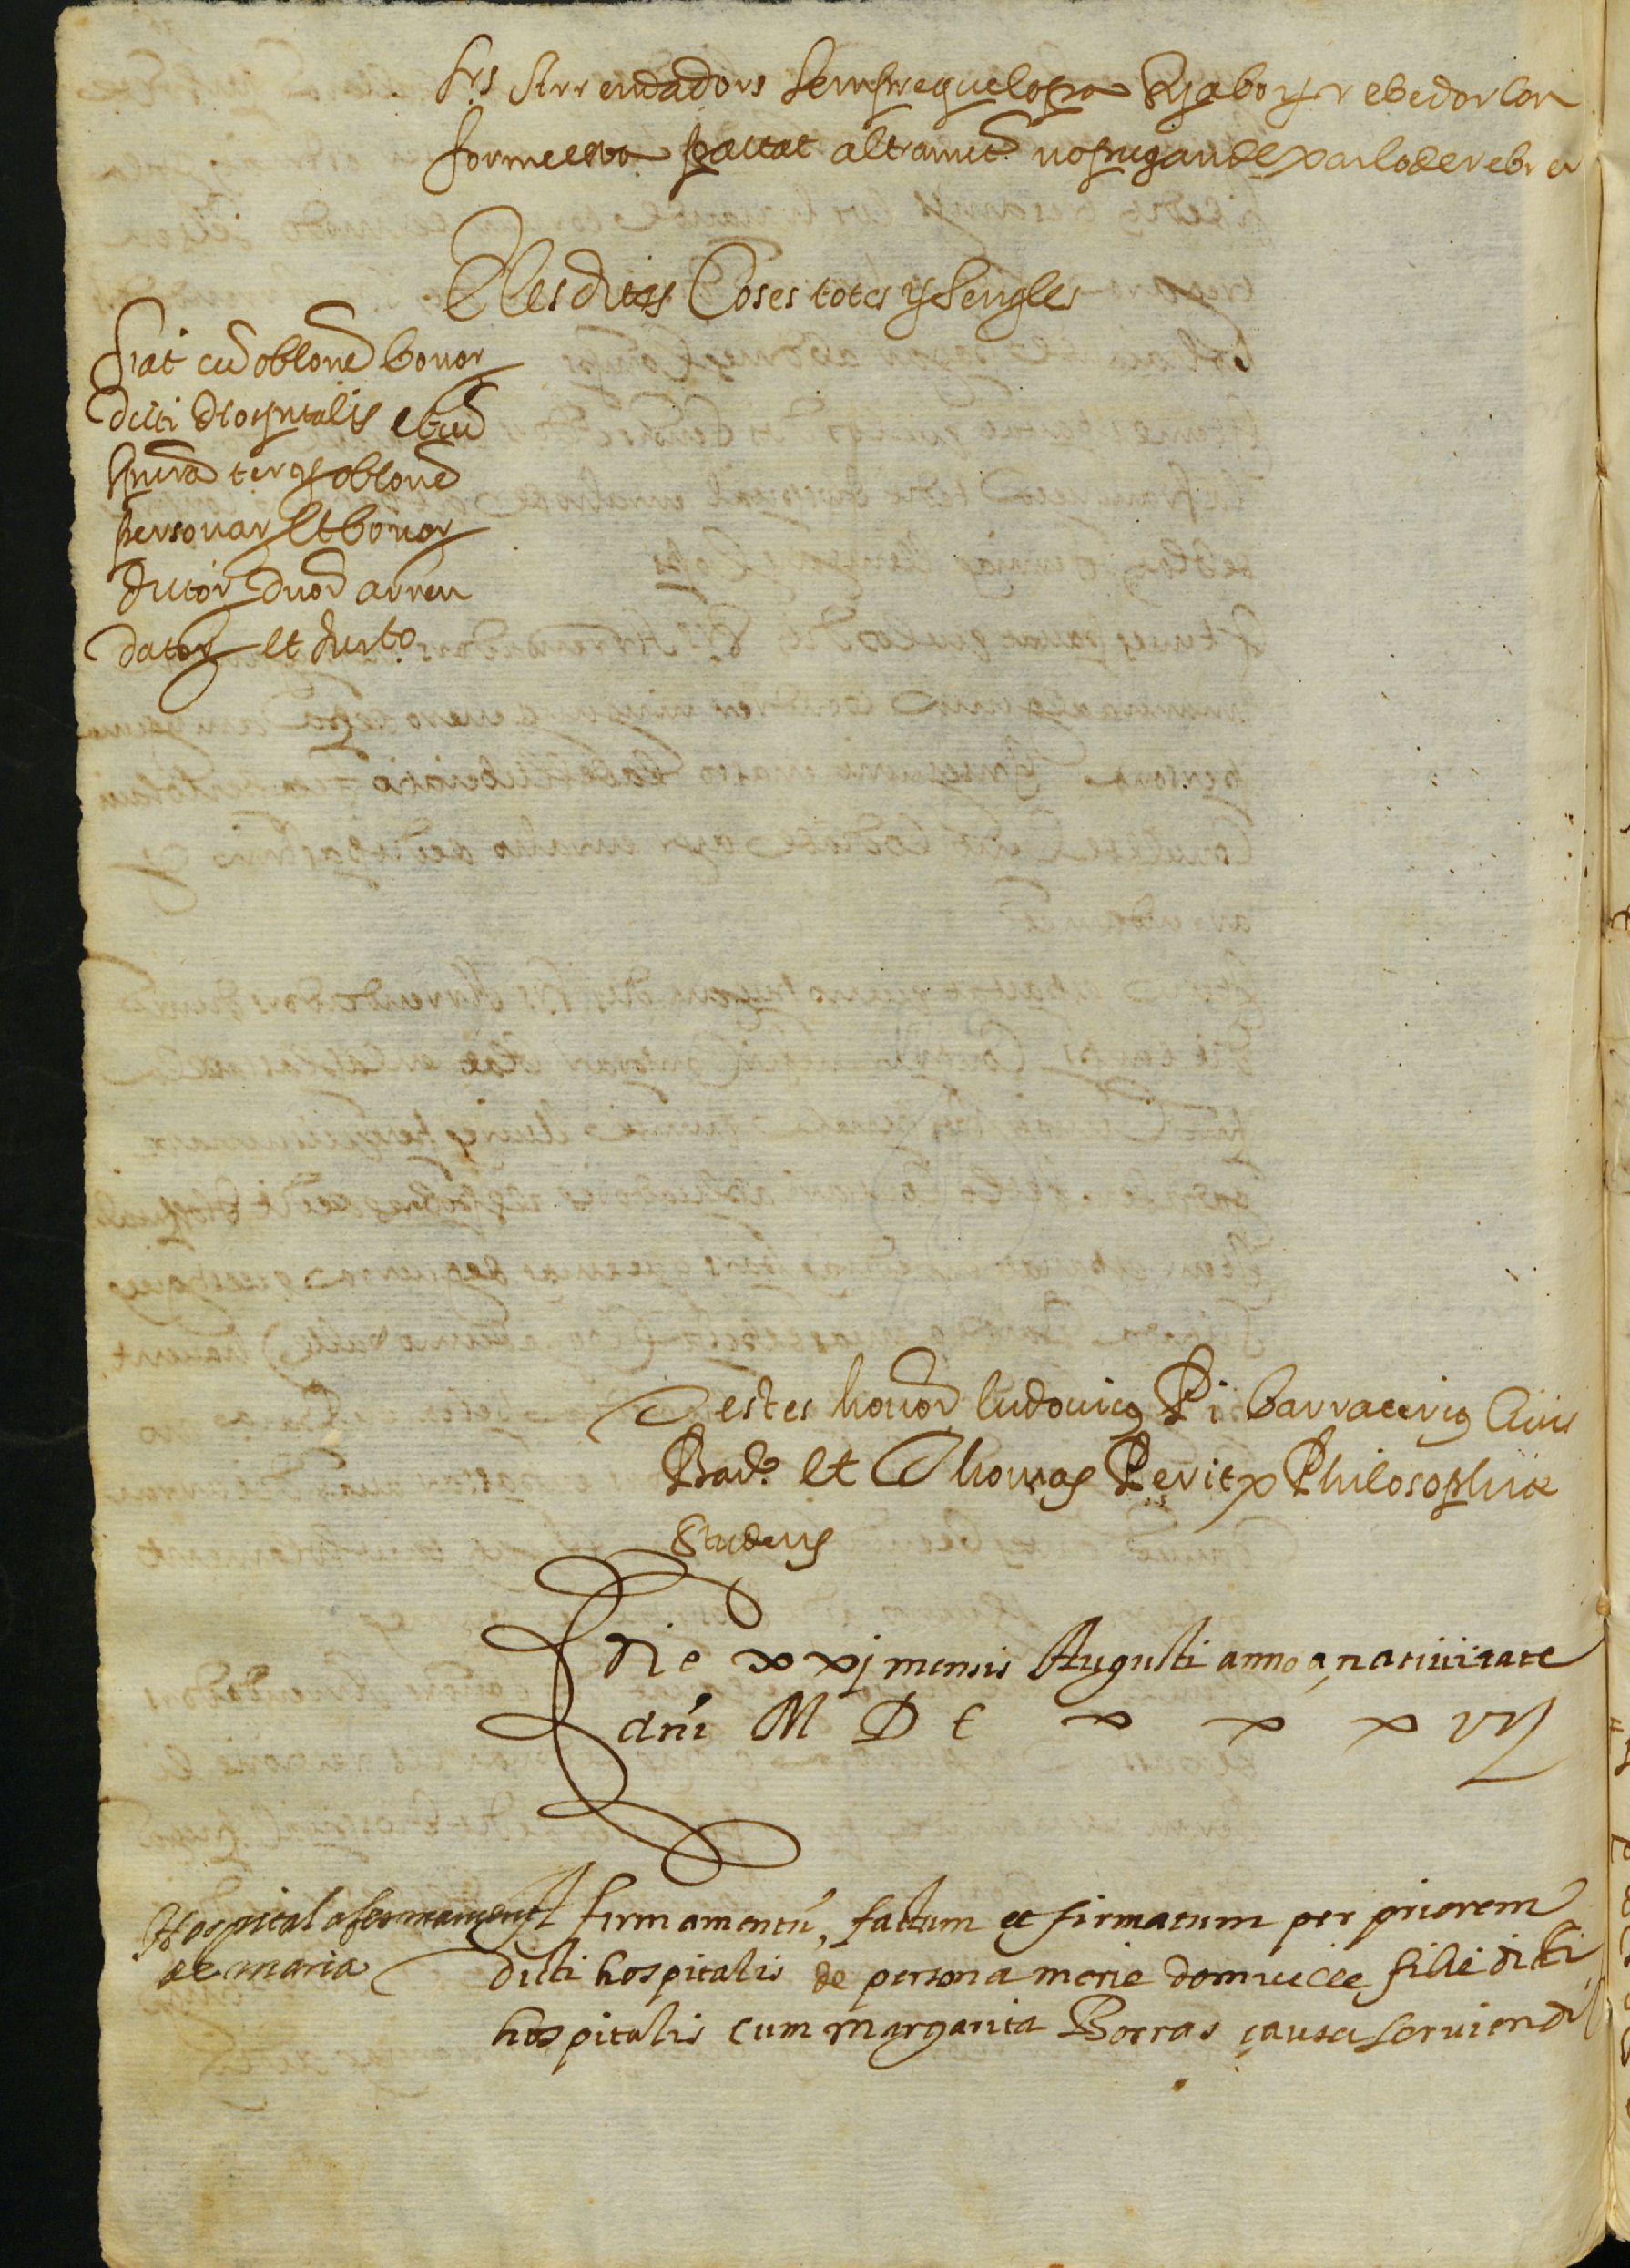 srs Arrendadors sempre que lo pa sia bo y rebedor con
forme esta pactat altrament no pugan dexarlo de rebrer
E les dites Coses totes y sengles
fiat cu oblone bonor
dicti Hospitalis et cu
iura tergs oblone
personar et bonor
dictor duor arren
dator et jur.to
Testes honor Ludovicus Pi barraterius Civis
Barc. et Thomas Peritx Philosophiæ
studens
die xxj mensis Augusti anno a nativitate
dni M D C x x x vij
Hospital afermament
de maria
firmamentu, factum et firmatum per priorem
dicti hospitalis de persona marie domicelle filie dicti
hospitalis cum Margarita Borras causa serviendi